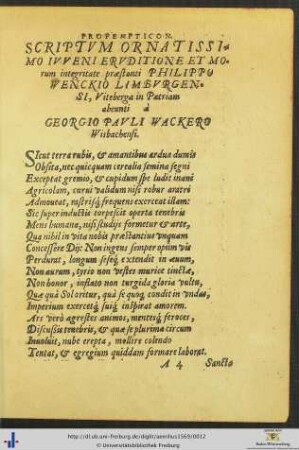 PROPEMPTICON
SCRIPTVM ORNATISSI-
MO IVVENI ERVDITIONE ET MO-
rum integritate præstanti PHILIPPO
WENCKIO LIMBVRGEN-
SI, Viteberga in Patriam
abeunti à
GEORGIO PAVLI WACKERO
Wisbachensi.
SIcut terra rubis, & amantibus ardua dumis
Obsita, nec quicquam cerealia semina segni
Exceptat gremio, & cupidum spe ludit inani
Agricolam, curui validum nisi robur aratri
Admoueat, rastrisq́; frequens exerceat illam:
Sic super inductis torpescit operta tenebris
Mens humana, nisi studijs formetur & arte,
Qua nihil in vita nobis præstantius vnquam
Concessere Dij: Non ingens semper opum vis
Perdurat, longum seseq́; extendit in æuum,
Non aurum, tyrio non vestes murice tinctæ,
Non honor, inflato non turgida gloria vultu,
Quæ quà Sol oritur, quà se quoq; condit in vndas,
Imperium exercetq́; suiq́; inspirat amorem.
Ars verò agrestes animos, mentesq́; feroces,
Discussis tenebris, & quæ se plurima circum
Inuoluit, nube erepta, mollire colendo
Tentat, & egregium quiddam formare laborat.
A 4 Sancta
http://dl.ub.uni-freiburg.de/diglit/aemilius1569/0012
© Universitätsbibliothek Freiburg
Baden-Württemberg